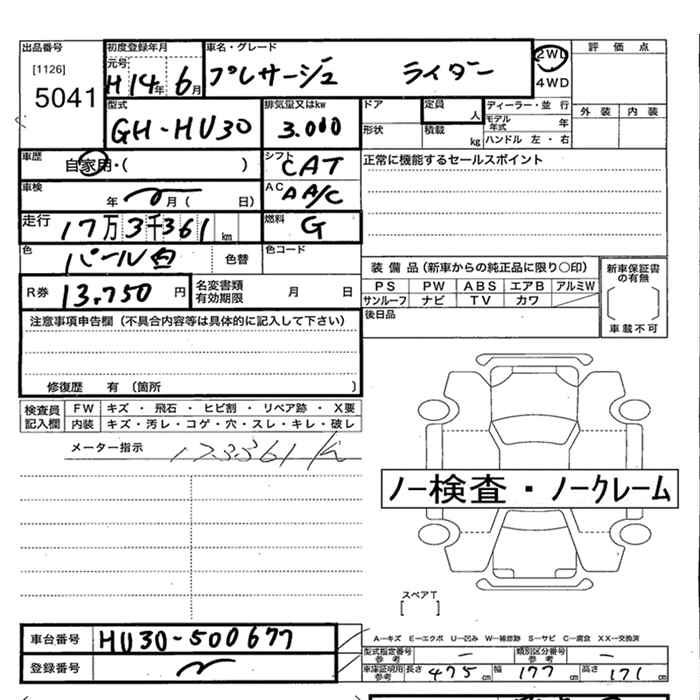 出品番号 [1126] 5041
初度登録年月 元号 H14年6月
車名・グレード プレサージュ ライダー
2WD
4WD
評価点
外装 内装
型式 GH-HU30
排気量又はkw 3.000
ドア
形状
定員 人
積載 kg
ディーラー・並行
モデル年式 年
ハンドル 左・右
車歴 自家用・( )
シフト CAT
正常に機能するセールスポイント
車検 年 月( 日)
AC AA/C
走行 17万3千361km
燃料 G
色 パール白 色替
色コード
R券 13.750円
名変書類有効期限 月 日
装備品(新車からの純正品に限り〇印)
PS PW ABS エアB アルミW
サンルーフ ナビ TV カワ
新車保証書の有無
車載不可
後日品
注意事項申告欄(不具合内容等は具体的に記入して下さい)
修復歴 有(箇所 )
検査員記入欄
FW キズ・飛石・ヒビ割・リペア跡・X要
内装 キズ・汚レ・コゲ・穴・スレ・キレ・破レ
メーター指示 173361k
ノー検査・ノークレーム
スペアT
[ ]
車台番号 HU30-500677
登録番号
A―キズ E―エクボ U―凹み W―補修跡 S―サビ C―腐食 XX―交換済
型式指定番号 参考 ―
類別区分番号 参考 ―
車庫証明用 参考 長さ 475cm 幅 177cm 高さ 171cm